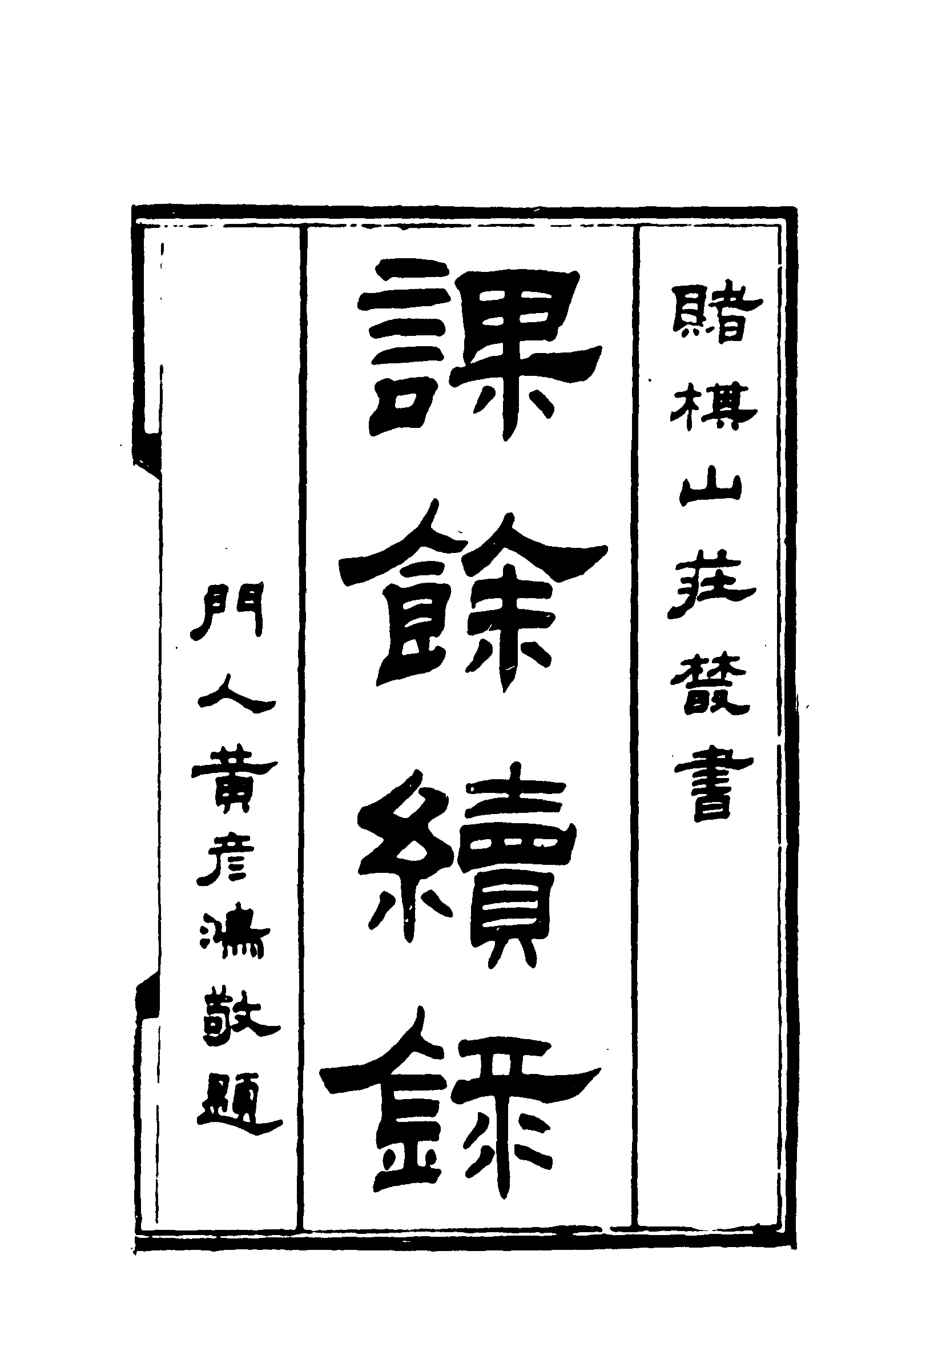 賭棋山莊叢書
課餘續錄
門人黃彥鴻敬題